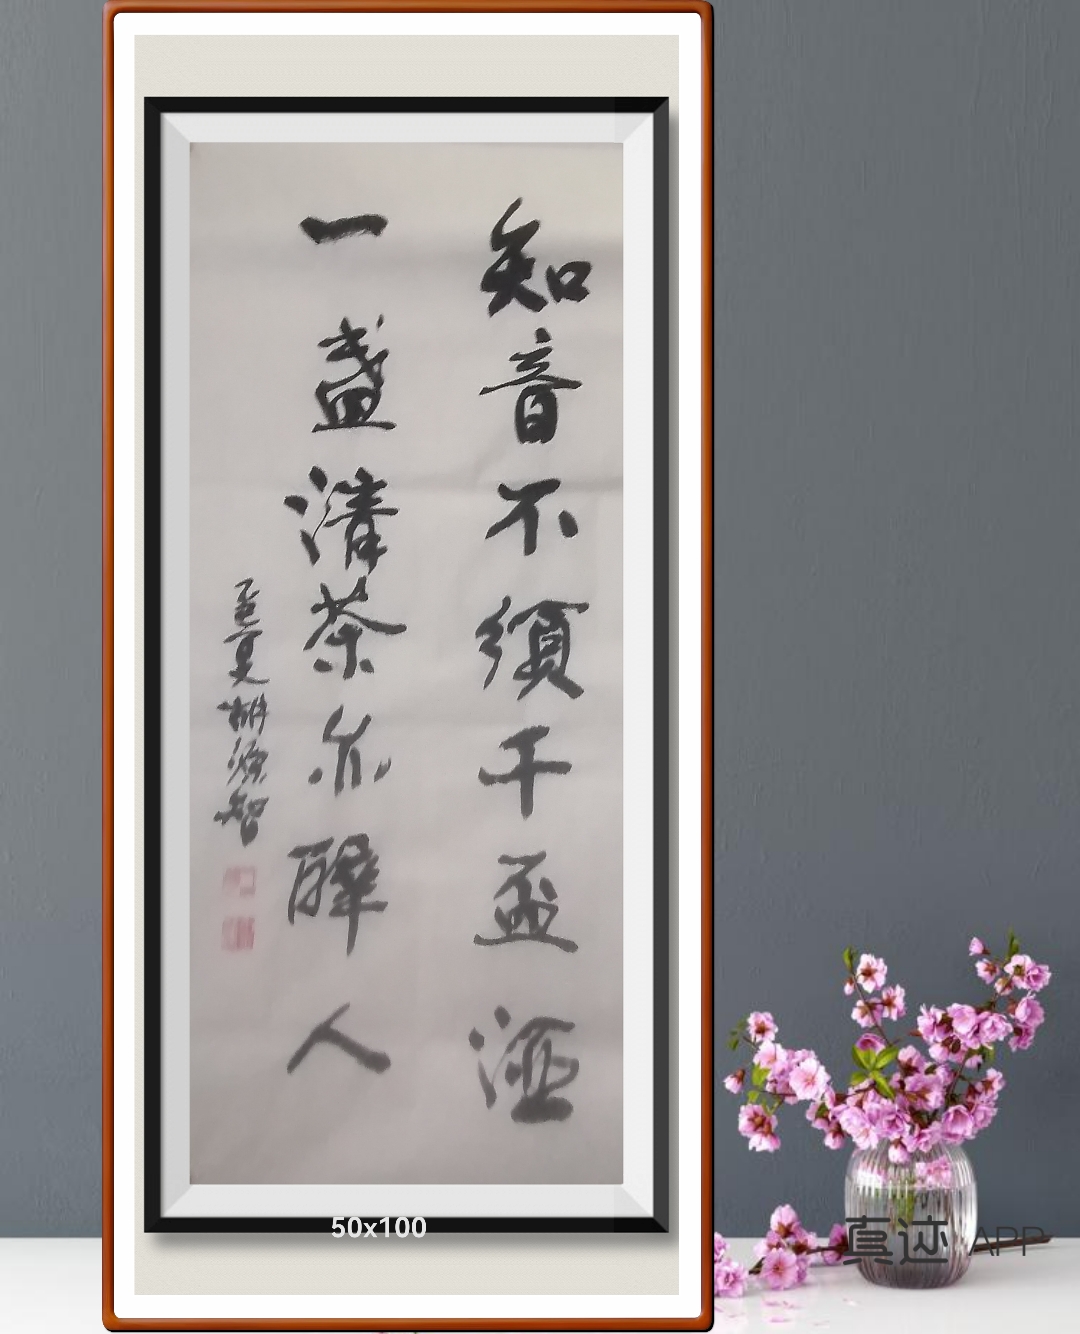 知音不须千盃酒
一盏清茶亦醉人
乙巳夏胡源智
50x100
真迹 APP